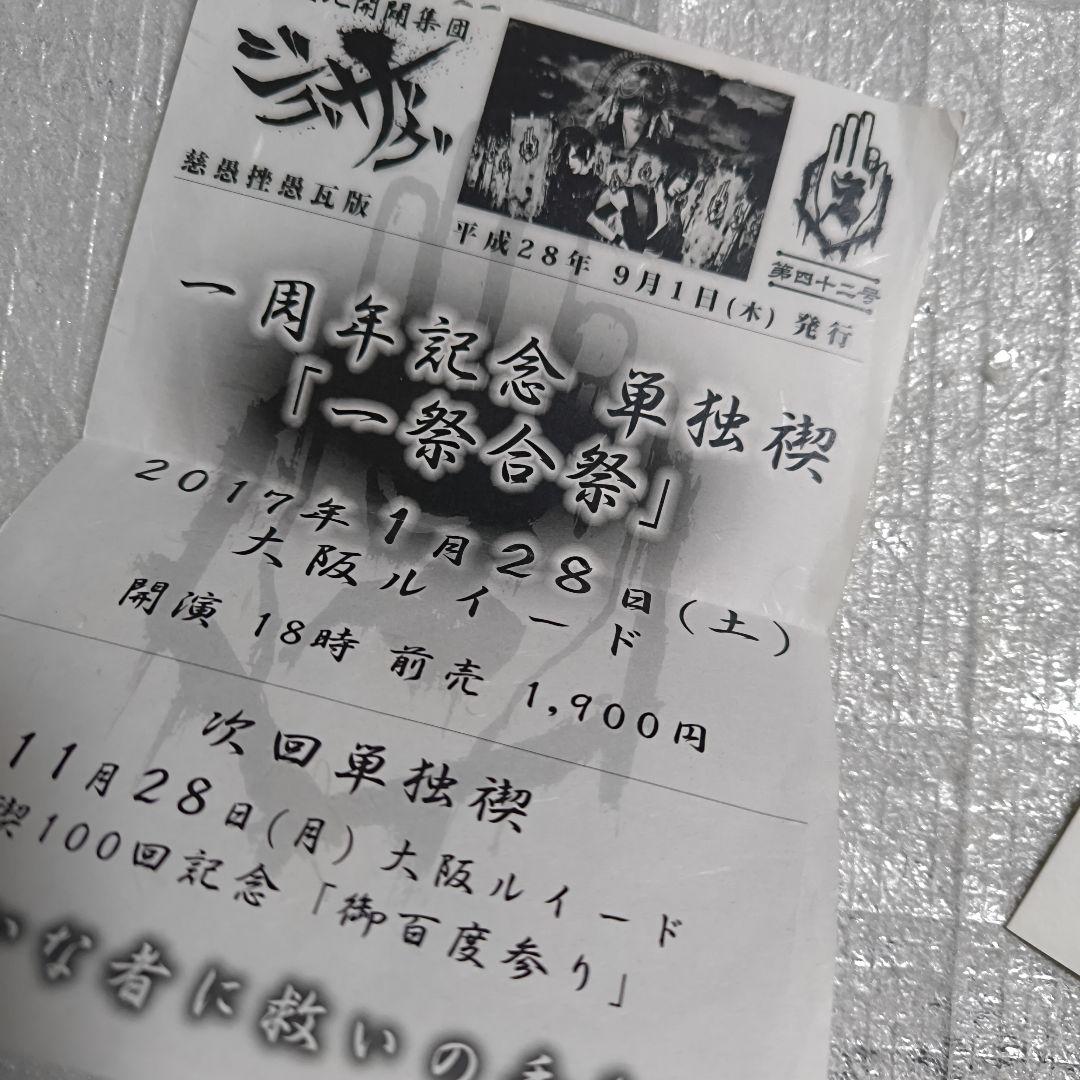 開闢集団
ジグザグ
慈愚挫愚瓦版
平成28年 9月1日(木) 発行
第四十二号
一周年記念 単独禊
「一祭合祭」
2017年1月28日(土)
大阪ルイード
開演 18時 前売 1,900円
次回単独禊
11月28日(月) 大阪ルイード
禊100回記念 「御百度参り」
な者に救いの手